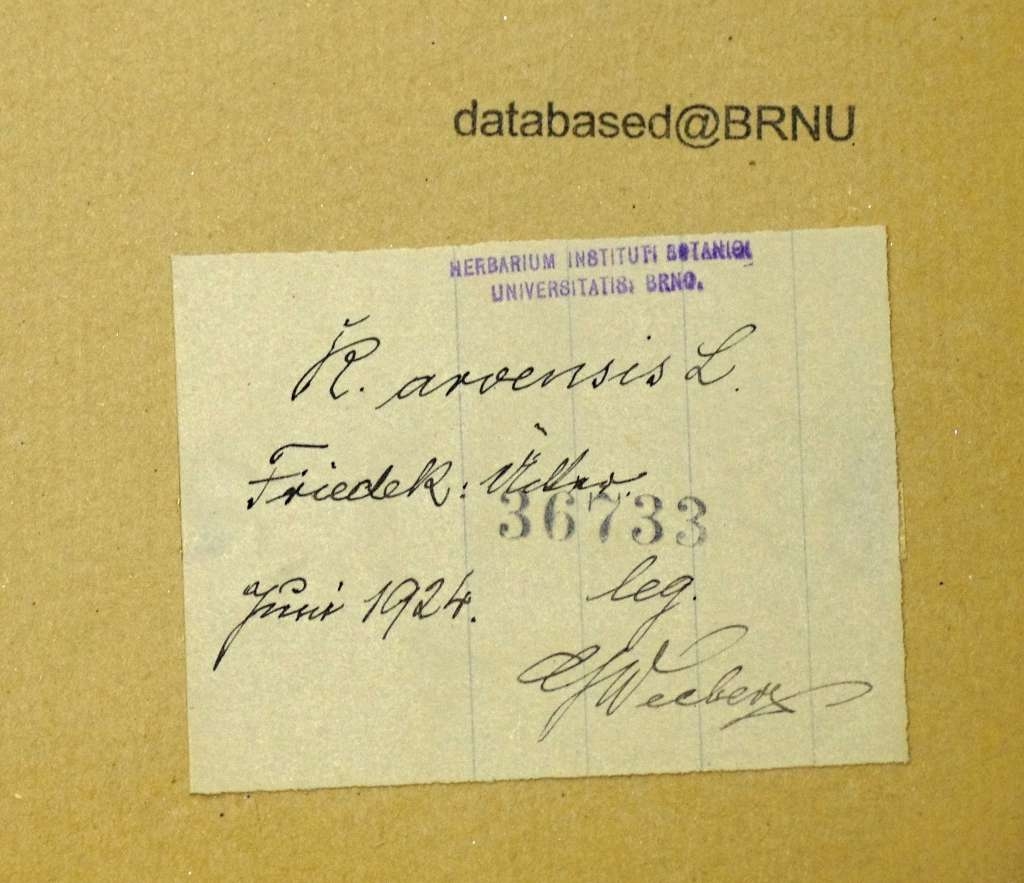 databased@BRNU
HERBARIUM INSTITUTI BOTANICI
UNIVERSITATIS, BRNO.
R. arvensis L.
Friedek:
36733
Juni 1924. leg.
Weeber